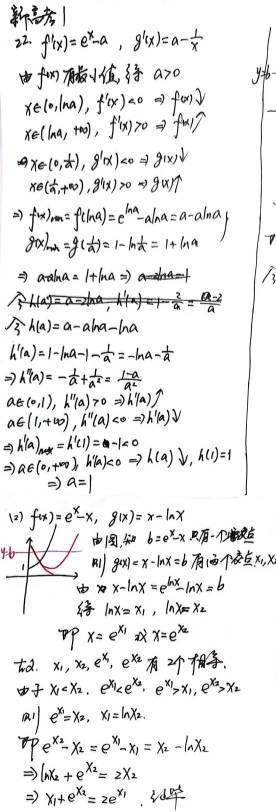 新高考1
22. f'(x)=e^x-a , g'(x)=a-1/x
由f(x)有最小值, 得 a>0
x∈(0,lna), f'(x)<0 ⇒ f(x)↓
x∈(lna, +∞), f'(x)>0 ⇒ f(x)↑
x∈(0,1/a), g'(x)<0 ⇒ g(x)↓
x∈(1/a,+∞), g'(x)>0 ⇒ g(x)↑
⇒ f(x)min=f(lna)=e^lna-alna=a-alna
g(x)min=g(1/a)=1-ln1/a=1+lna
⇒ a-alna=1+lna ⇒
令 h(a)=a-alna-lna
h'(a)=1-lna-1-1/a=-lna-1/a
⇒ h''(a)=-1/a+1/a²=(1-a)/a²
a∈(0,1), h''(a)>0 ⇒ h'(a)↑
a∈(1,+∞), h''(a)<0 ⇒ h'(a)↓
⇒ h'(a)max=h'(1)=-1<0
⇒ a∈(0,+∞), h'(a)<0 ⇒ h(a)↓, h(1)=1
⇒ a=1
(2) f(x)=e^x-x, g(x)=x-lnx
y=b
1
由图, 知 b=e^x-x 只有一个
则 g(x)=x-lnx=b 有两个交点x1,x2
由 x-lnx=e^lnx-lnx=b
得 lnx=x1 , lnx=x2
即 x=e^x1 或 x=e^x2
x1, x2, e^x1, e^x2 有2个相等.
由于 x1<x2. e^x1<e^x2, e^x1>x1, e^x2>x2
则 e^x1=x2, x1=lnx2.
即 e^x2-x2=e^x1-x1=x2-lnx2
⇒ lnx2+e^x2=2x2
⇒ x1+e^x2=2e^x1 .